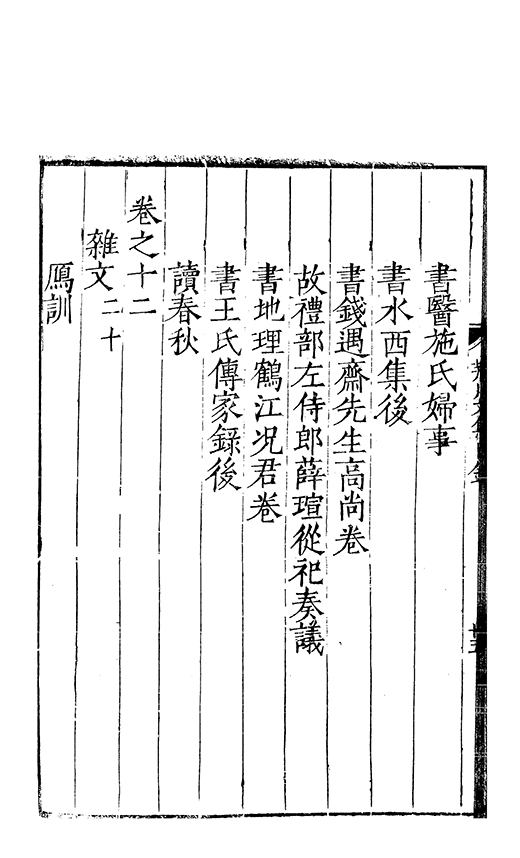 書醫施氏婦事
書水西集後
書錢遇齋先生高尚卷
故禮部左侍郎薛瑄從祀奏議
書地理鶴江况君卷
書王氏傳家録後
讀春秋
卷之十二
雜文二十
鴈訓